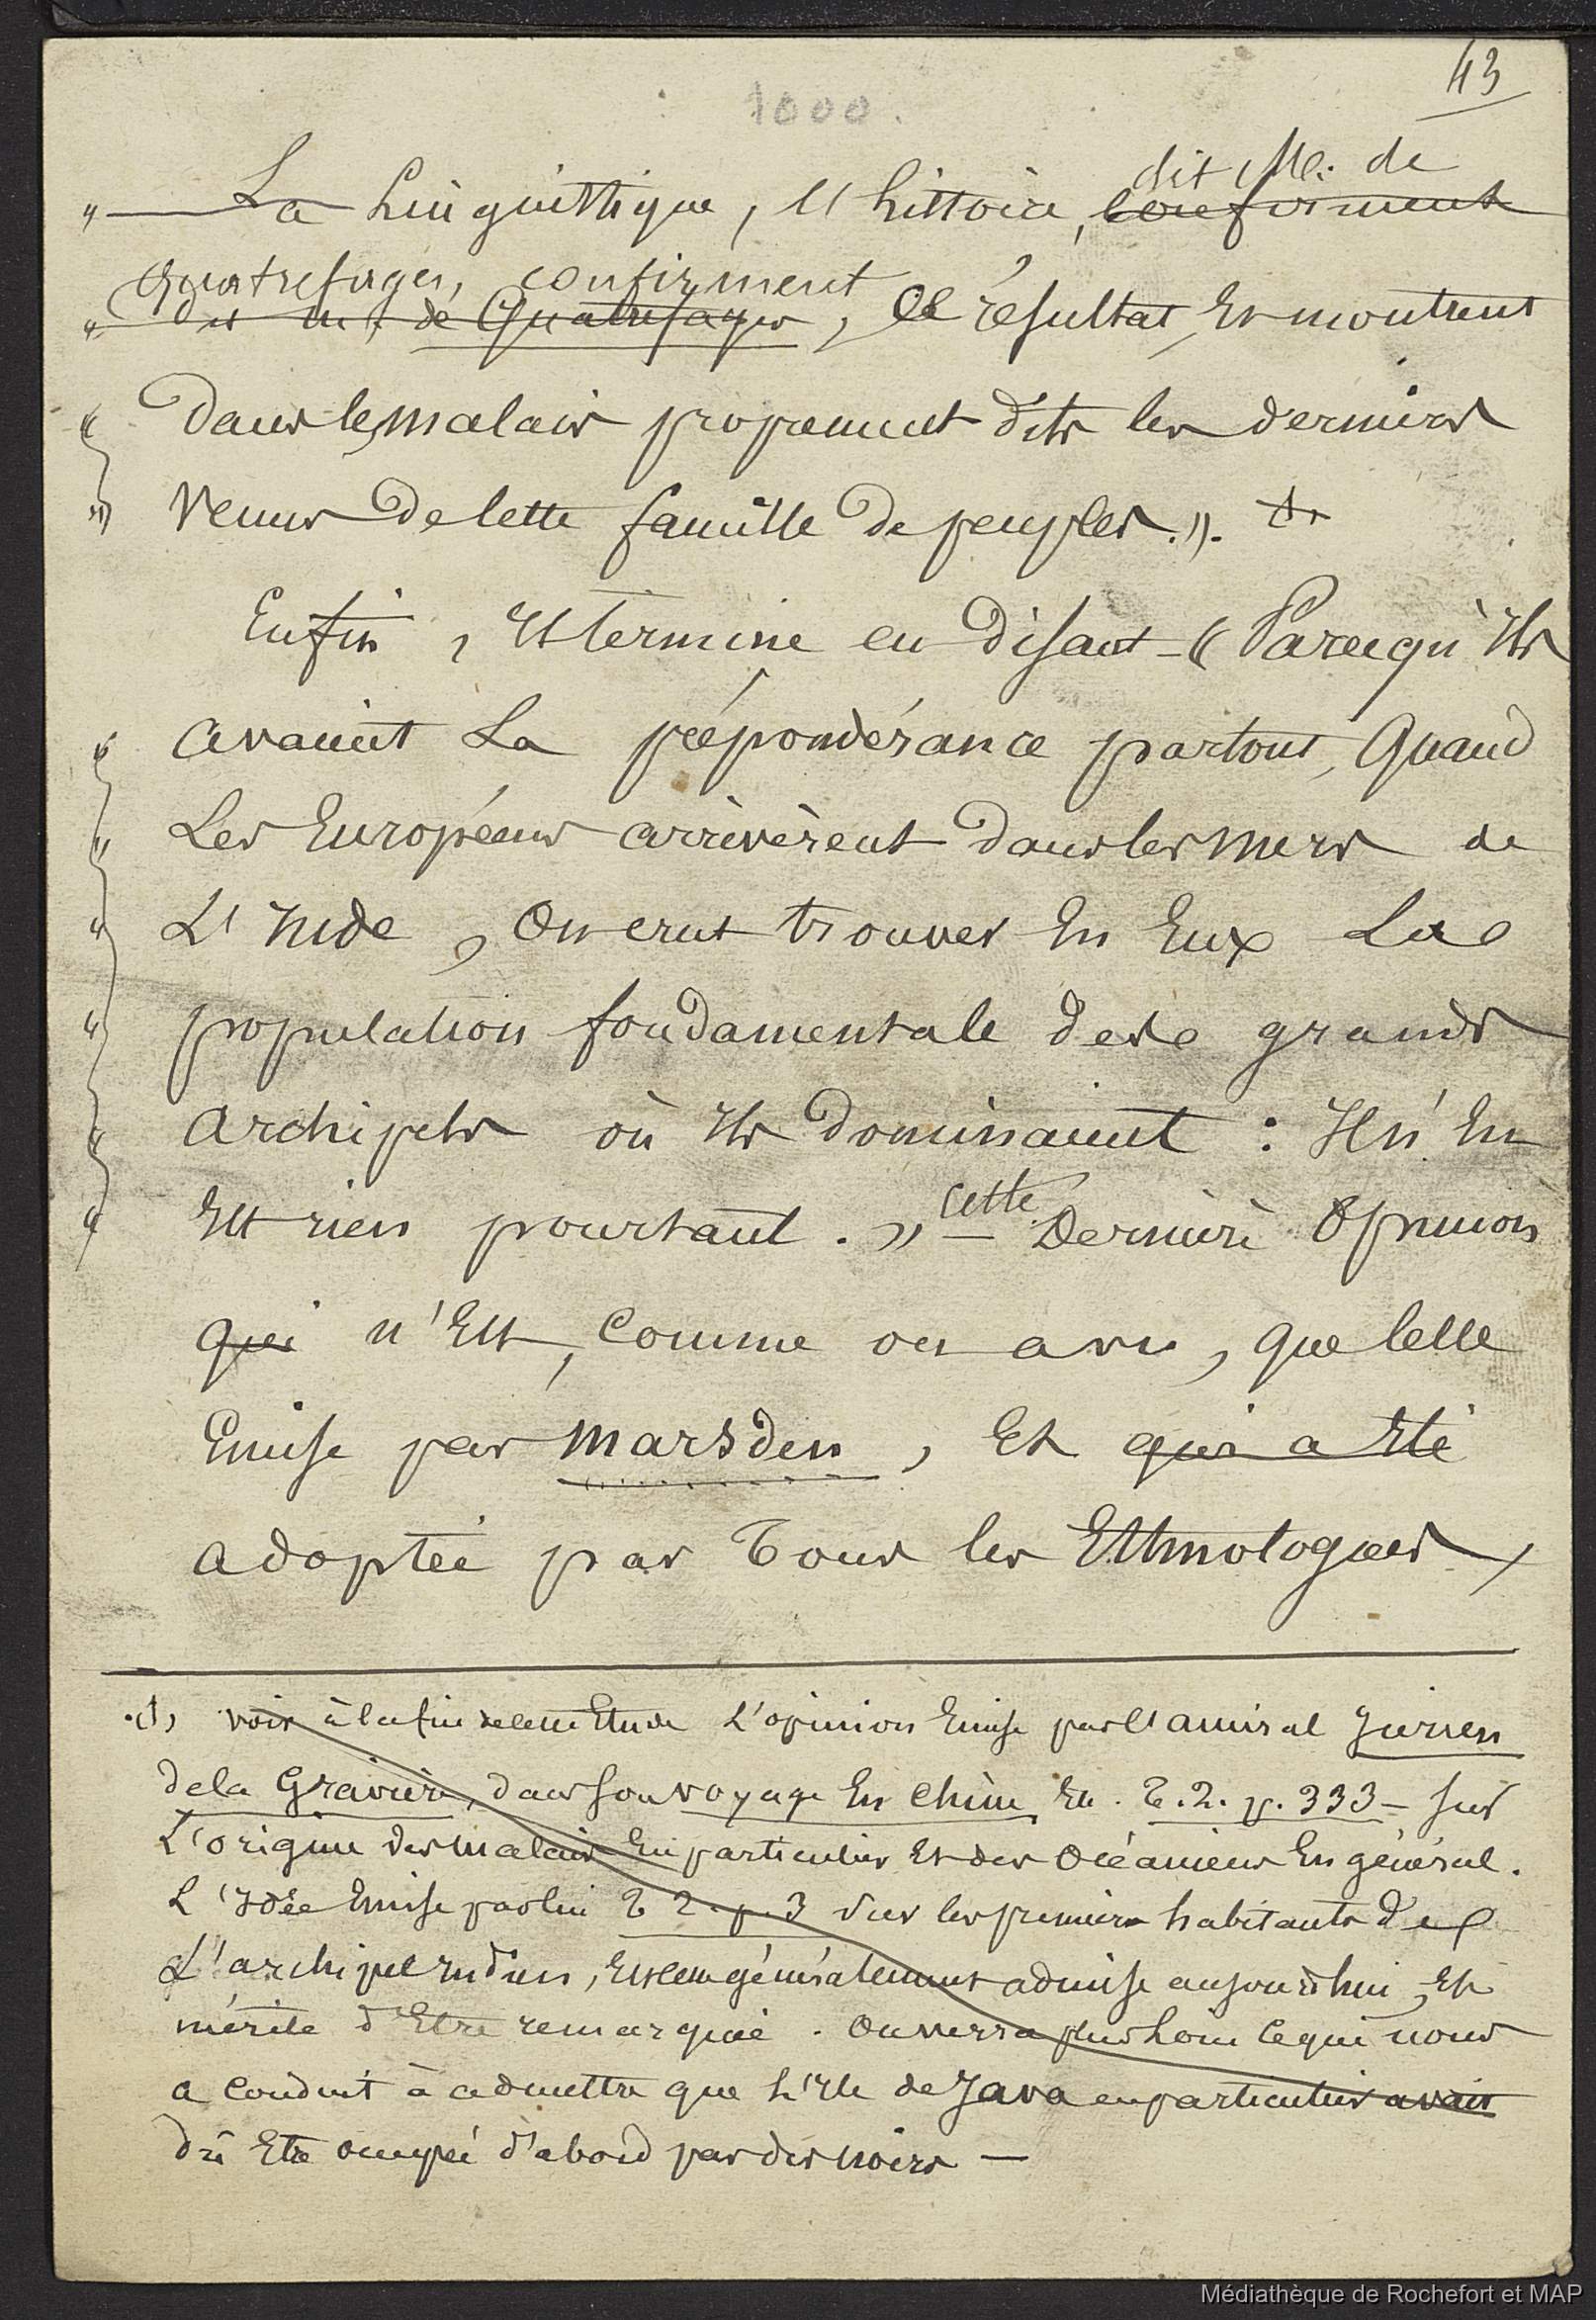 43
1000.
dit M. de
" — La Linguistique, l'histoire, confirment
Quatrefages, confirment
" dit M. de Quatrefages, ce résultat, Et montrent
" Dans les malais proprement dits les derniers
" Venus de cette famille de peuples.". (1)
Enfin, Il termine en disant - " Parcequ'Ils
" avaient La prépondérance partout, Quand
" Les Européens arrivèrent dans les mers de
" L'Inde, On crut trouver En Eux La
" population fondamentale des grands
" archipels où Ils dominaient : Il n'En
" Est rien pourtant. " — cette Dernière Opinion
qui n'Est, comme on a vu, que celle
Emise par Marsden, Et qui a Eté
adoptée par Tous les Ethnologues,
(1) voir à la fin de cette Etude L'opinion Emise par l'amiral Jurien
de la Gravière, dans son voyage En Chine, Etc. T. 2. p. 333 — sur
L'origine des Malais En particulier Et des Océaniens En général.
L'Idée Emise par lui T. 2. p. 3 sur les premiers habitants de
L'archipel Indien, Est généralement admise aujourd'hui, Et
mérite d'Etre remarquée. On verra plus Loin ce qui nous
a conduit à admettre que L'Ile de Java en particulier avait
dû Etre occupée d'abord par des noirs —
Médiathèque de Rochefort et MAP